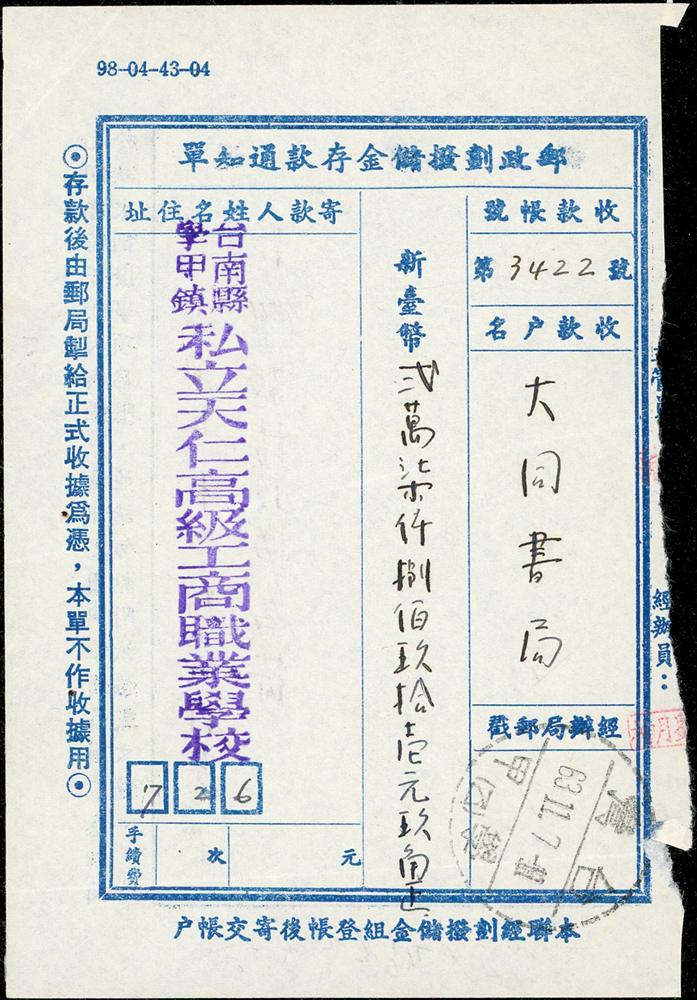 98-04-43-04
郵政劃撥儲金存款通知單
收款帳號
第3422號
收款户名
大同書局
經辦局郵戳
63.11.7
新臺幣貳萬柒仟捌佰玖拾壱元玖角正
寄款人姓名住址
台南縣
學甲鎮
私立天仁高級工商職業學校
726
手續費
次
元
經辦員：
◉存款後由郵局掣給正式收據爲憑，本單不作收據用◉
本聯經劃撥儲金組登帳後寄交帳户